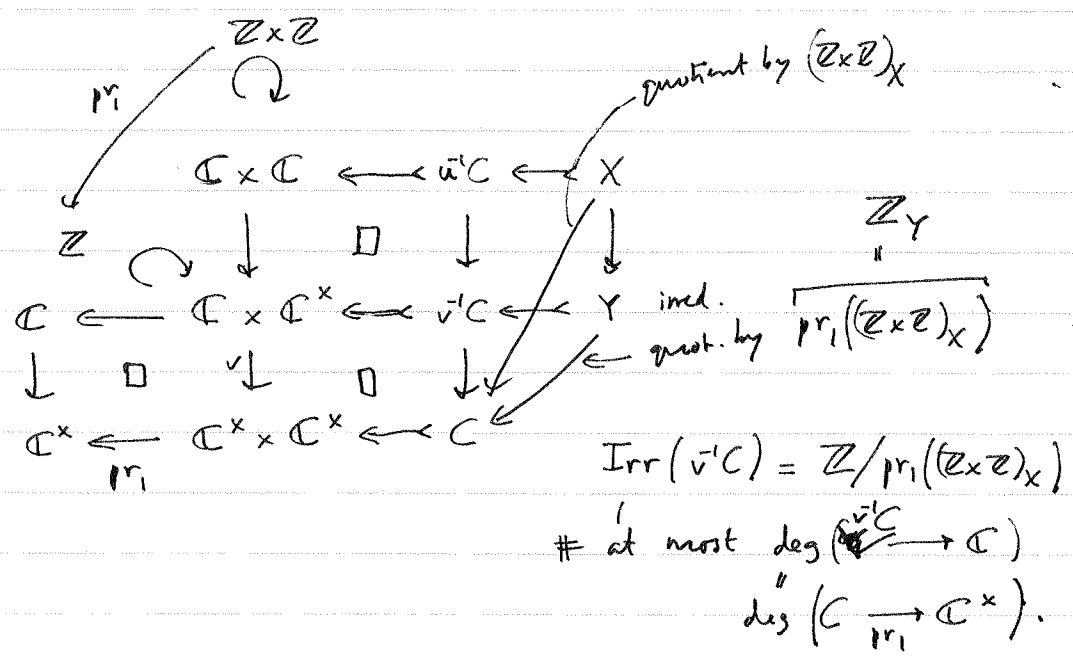 ℤ×ℤ
quotient by (ℤ×ℤ)_X
pr₁
ℂ × ℂ ← u⁻¹C ← X
ℤ
□
ℤ_Y
"
ℂ ← ℂ × ℂ^× ← v⁻¹C ← Y irred.
quot. by pr₁((ℤ×ℤ)_X)
□ v □
ℂ^× ← ℂ^× × ℂ^× ← C
pr₁
Irr(v⁻¹C) = ℤ/pr₁((ℤ×ℤ)_X)
# at most deg(v⁻¹C → ℂ)
"
deg(C → ℂ^×).
pr₁